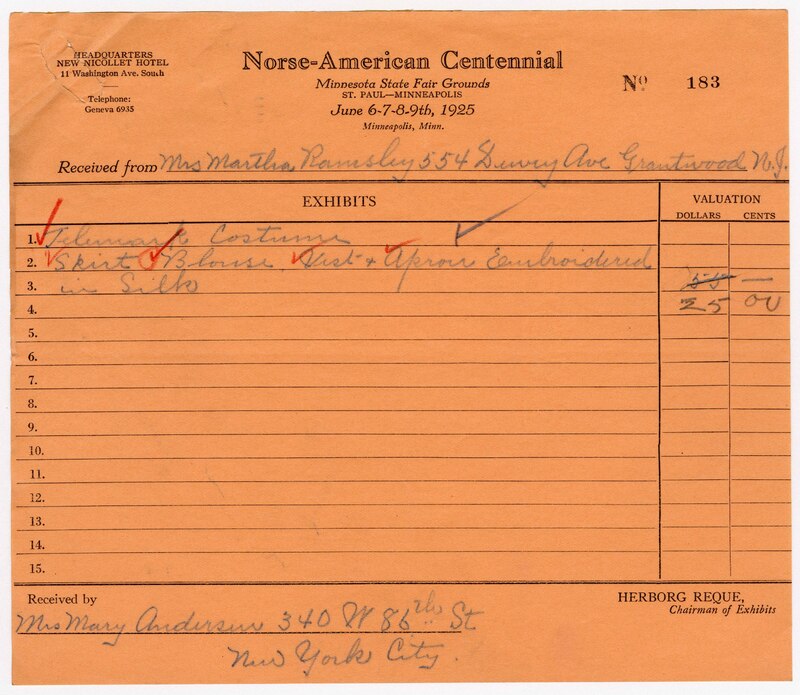 HEADQUARTERS
NEW NICOLLET HOTEL
11 Washington Ave. South
Telephone:
Geneva 6935
Norse-American Centennial
Minnesota State Fair Grounds
ST. PAUL—MINNEAPOLIS
June 6-7-8-9th, 1925
Minneapolis, Minn.
No 183
Received from Mrs Martha Ramsley 554 Dewey Ave Grantwood N.J.
EXHIBITS
VALUATION
DOLLARS CENTS
1. Telemark Costume
2. Skirt Blouse Vest + Apron Embroidered
3. in Silk 55 —
4. 25 00
5.
6.
7.
8.
9.
10.
11.
12.
13.
14.
15.
Received by
Mrs Mary Andersen 340 W 86th St
New York City.
HERBORG REQUE,
Chairman of Exhibits